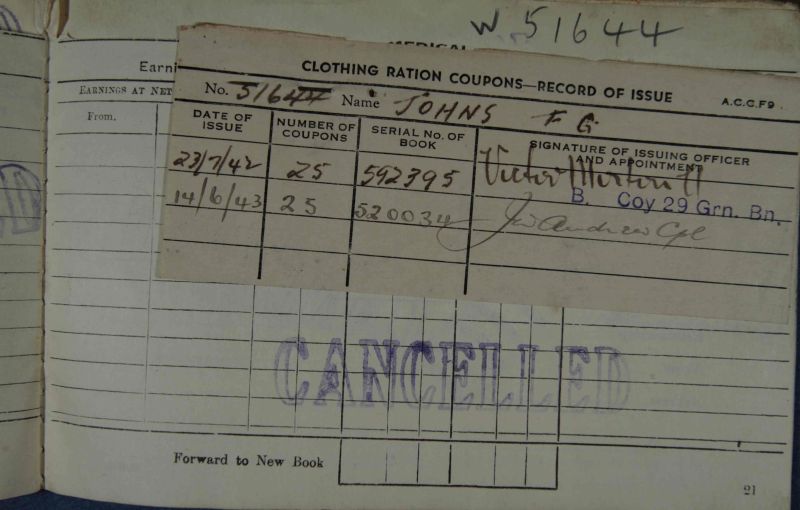 W 51644
MEDICAL
CLOTHING RATION COUPONS—RECORD OF ISSUE
A.C.G.F9.
No. 51644 Name JOHNS F G
Earni
EARNINGS AT NET
From.
DATE OF ISSUE NUMBER OF COUPONS SERIAL No. OF BOOK SIGNATURE OF ISSUING OFFICER AND APPOINTMENT
23/7/42 25 592395 Victor
B. Coy 29 Grn. Bn.
14/6/43 25 520034 Andrew Cpl
CANCELLED
Forward to New Book
21